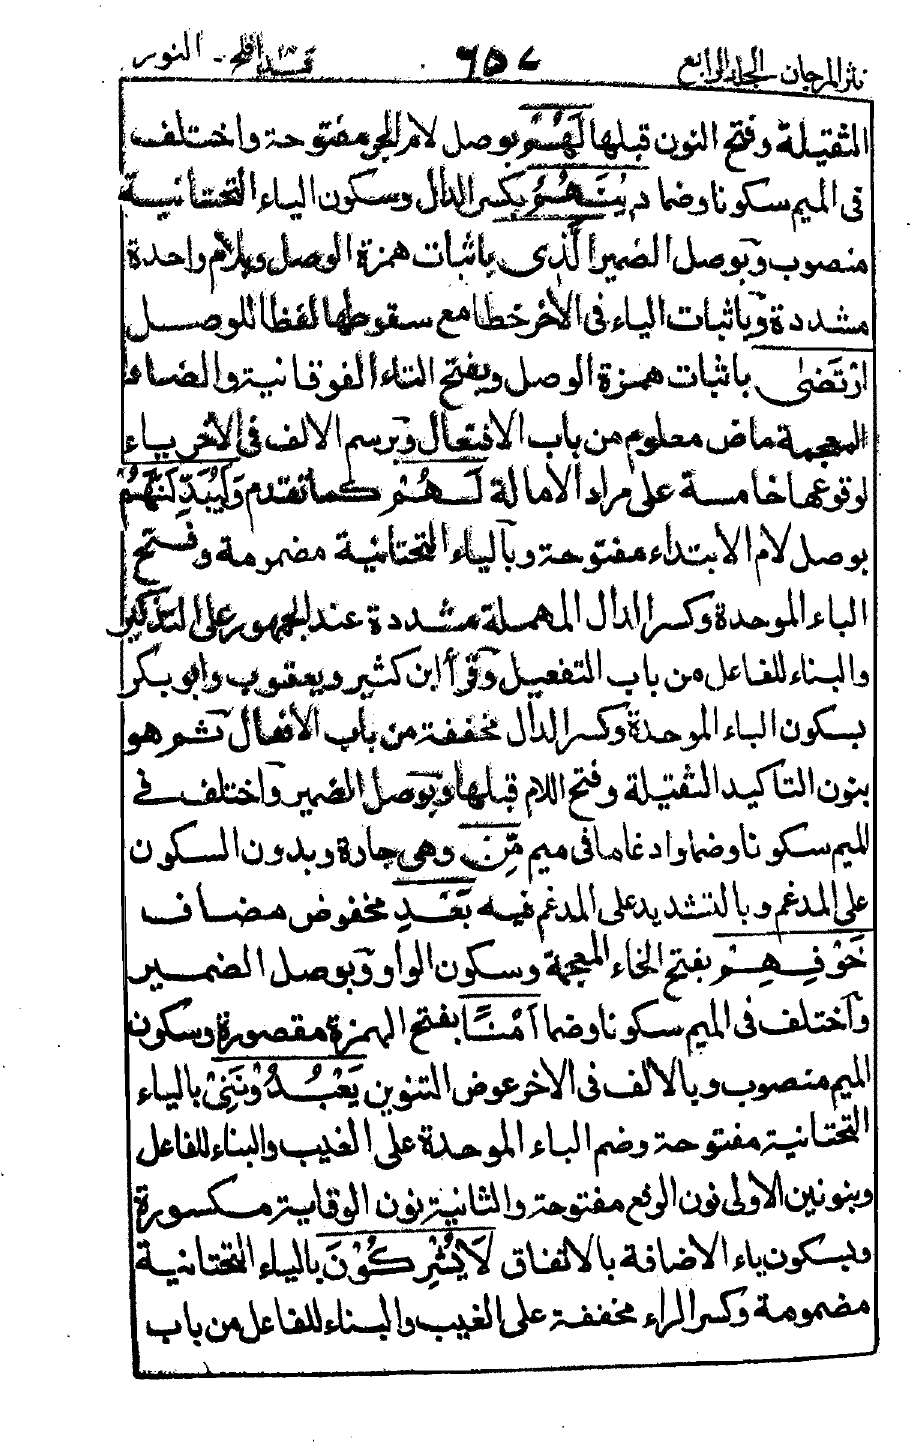 نثر المرجان - الجلد الرابع ٦٥٧ قد افلح - النور
الثقيلة وفتح النون قبلها لَهُمْ بوصل لام الجر مفتوحة واختلف
فى الميم سكونا وضما دِينَهُمُ بكسر الدال وسكون الياء التحتانية
منصوب وبوصل الضمير الَّذِى باثبات همزة الوصل وبلام واحدة
مشددة وباثبات الياء فى الآخر خطا مع سقوطها لفظا للوصل
ارْتَضٰى باثبات همزة الوصل وبفتح التاء الفوقانية والضاد
المعجمة ماض معلوم من باب الافتعال وبرسم الالف فى الآخر ياء
لوقوعها خامسة على مراد الامالة لَهُمْ كما تقدم وَلَيُبَدِّلَنَّهُمْ
بوصل لام الابتداء مفتوحة وبالياء التحتانية مضمومة وفتح
الباء الموحدة وكسر الدال المهملة مشددة عند الجمهور على التذكير
والبناء للفاعل من باب التفعيل وقرأ ابن كثير ويعقوب وابو بكر
بسكون الباء الموحدة وكسر الدال مخففة من باب الافعال ثم هو
بنون التاكيد الثقيلة وفتح اللام قبلها وبوصل الضمير واختلف فى
الميم سكونا وضما وادغاما فى ميم مِّنْ وهى جارة وبدون السكون
على المدغم وبالتشديد على المدغم فيه بَعْدِ مخفوض مضاف
خَوْفِهِمْ بفتح الخاء المعجمة وسكون الواو وبوصل الضمير
واختلف فى الميم سكونا وضما اَمْنًا بفتح الهمزة مقصورة وسكون
الميم منصوب وبالالف فى الآخر عوض التنوين يَعْبُدُوْنَنِىْ بالياء
التحتانية مفتوحة وضم الباء الموحدة على الغيب والبناء للفاعل
وبنونين الاولى نون الرفع مفتوحة والثانية نون الوقاية مكسورة
وبسكون ياء الاضافة بالاتفاق لَايُشْرِكُوْنَ بالياء التحتانية
مضمومة وكسر الراء مخففة على الغيب والبناء للفاعل من باب